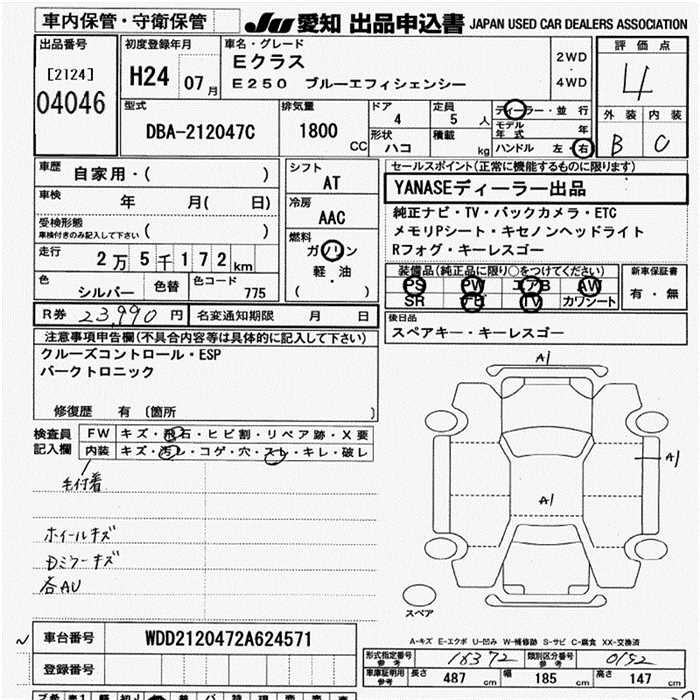 車内保管・守衛保管
JU 愛知 出品申込書 JAPAN USED CAR DEALERS ASSOCIATION
出品番号
[2124]
04046
初度登録年月
H24 07月
車名・グレード
Eクラス
E250 ブルーエフィシェンシー
2WD
・
4WD
評価点
4
外装 内装
B C
型式
DBA-212047C
排気量
1800 CC
ドア
4
形状
ハコ
定員
5 人
積載
kg
ディーラー・並行
モデル年式 年
ハンドル 左・右
車歴
自家用・( )
車検
年 月( 日)
受検形態
車検付きのみ記入して下さい ( )
走行
2万5千172km
色
シルバー
色替
色コード
775
シフト
AT
冷房
AAC
燃料
ガソリン
軽・油
( )
セールスポイント(正常に機能するものに限ります)
YANASEディーラー出品
純正ナビ・TV・バックカメラ・ETC
メモリPシート・キセノンヘッドライト
Rフォグ・キーレスゴー
装備品(純正品に限り○をつけてください)
PS PW エアB AW
SR ナビ TV カワシート
新車保証書
有・無
R券 23,990 円
名変通知期限 月 日
後日品
スペアキー・キーレスゴー
注意事項申告欄(不具合内容等は具体的に記入して下さい)
クルーズコントロール・ESP
パークトロニック
修復歴 有 〔箇所 〕
検査員
記入欄
FW キズ・飛石・ヒビ割・リペア跡・X要
内装 キズ・汚レ・コゲ・穴・スレ・キレ・破レ
毛付着
ホイールキズ
Dミラーキズ
各AU
A1
A1
A1
スペア
A-キズ E-エクボ U-凹み W-補修跡 S-サビ C-腐食 XX-交換済
車台番号
WDD2120472A624571
登録番号
形式指定番号
参考
18372
類別区分番号
参考
0152
車庫証明用
参考
長さ 487 cm 幅 185 cm 高さ 147 cm